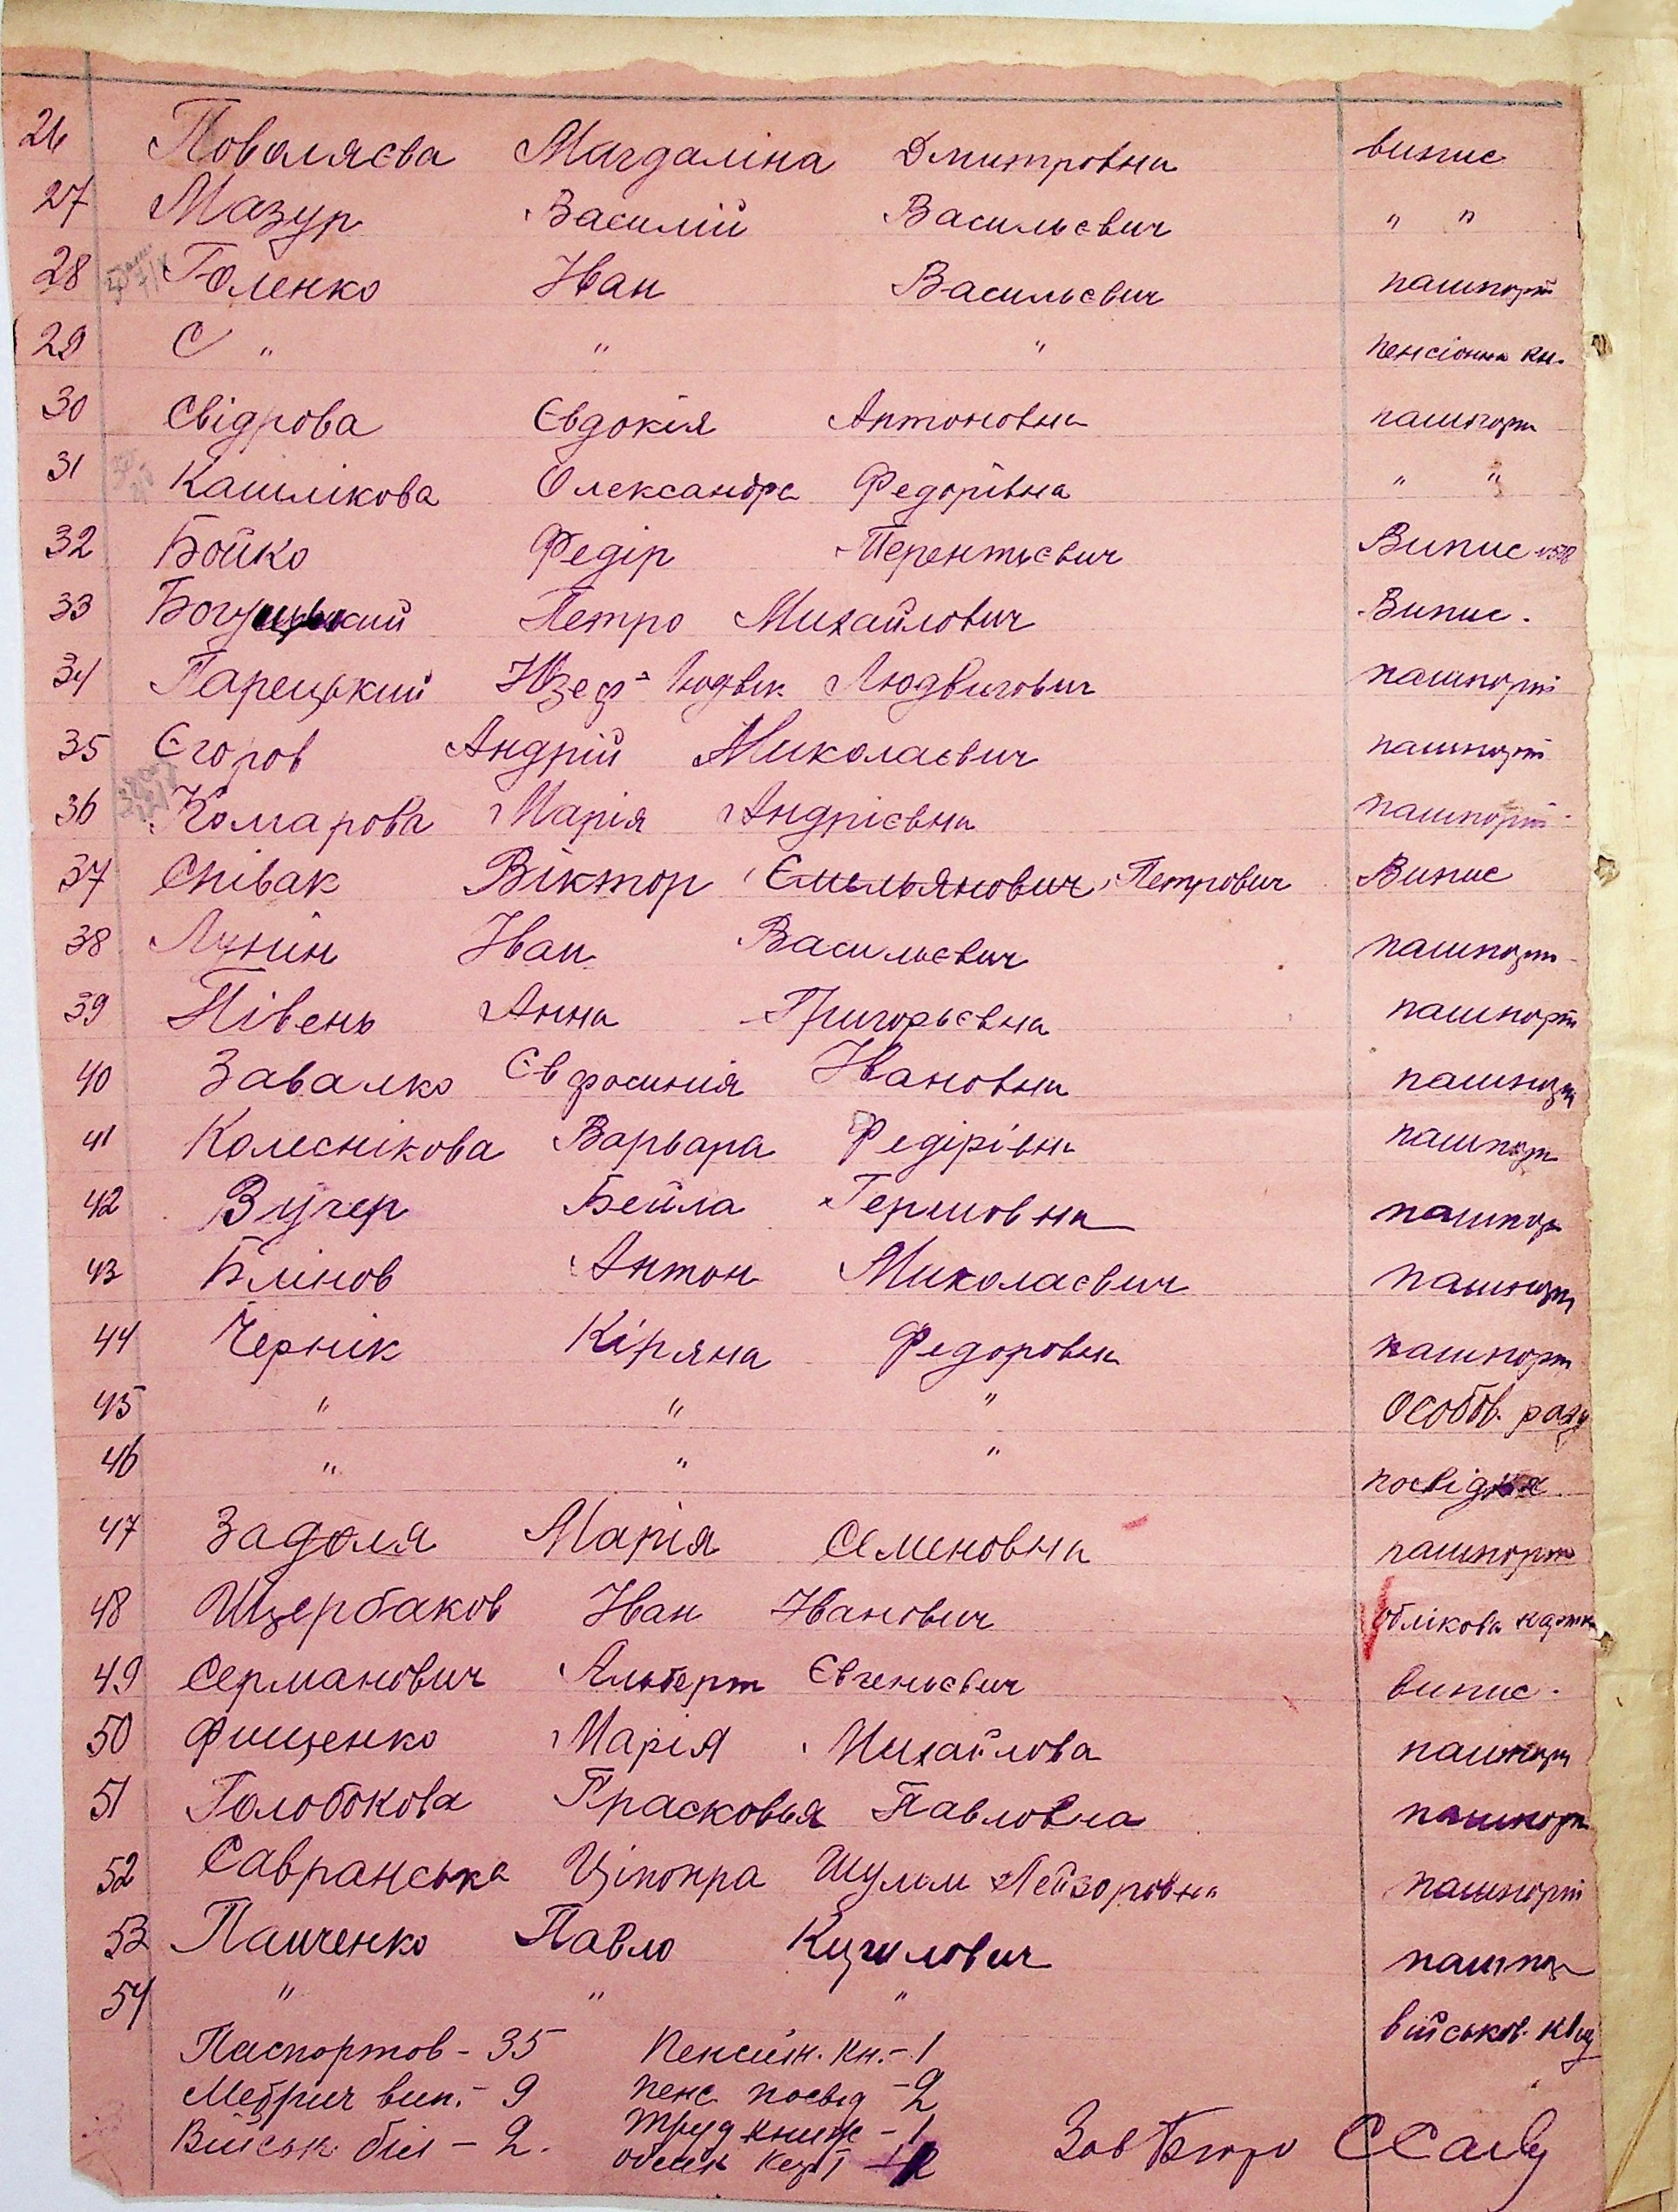 26 Поваляєва Магдаліна Дмитровна випис
27 Мазур Василій Васильєвич " "
28 Голенко Іван Васильєвич пашпорт
29 " " " пенсіонна кн.
30 Свідрова Євдокія Антоновна пашпорт
31 Кашлікова Олександра Федорівна " "
32 Бойко Федір Терентьєвич Випис
33 Петро Михайлович Випис.
34 Гарецький Юзеф-Людвік Людвигович пашпорт
35 Єгоров Андрій Миколаєвич пашпорт
36 Комарова Марія Андрієвна пашпорт
37 Співак Віктор Ємельянович Петрович Випис
38 Лунін Іван Васильєвич пашпорт
39 Півень Анна Григорьєвна пашпорт
40 Завалко Євфросинія Івановна пашпорт
41 Колеснікова Варвара Федірівна пашпорт
42 Вугер Бейла Гершовна пашпор
43 Блінов Антон Миколаєвич пашпорт
44 Чернік Кіряна Федоровна пашпорт
45 " " " Особов. рах
46 " " " посвідка
47 Задоля Марія Семеновна пашпорт
48 Щербаков Іван Іванович облікова картк
49 Серманович Альберт Євгеньєвич випис.
50 Фищенко Марія Михайлова пашпорт
51 Голобокова Прасковья Павловна пашпорт
52 Савранська Ципойра Шулим Лейзоровна пашпорт
53 Панченко Павло Кирилович пашпор
54 " " " військов. квит
Паспортов - 35 Пенсійн. кн. - 1
Метрич вип. - 9 пенс посвід - 2
Військ. біл - 2. Труд книж - 1
Зав Бюро